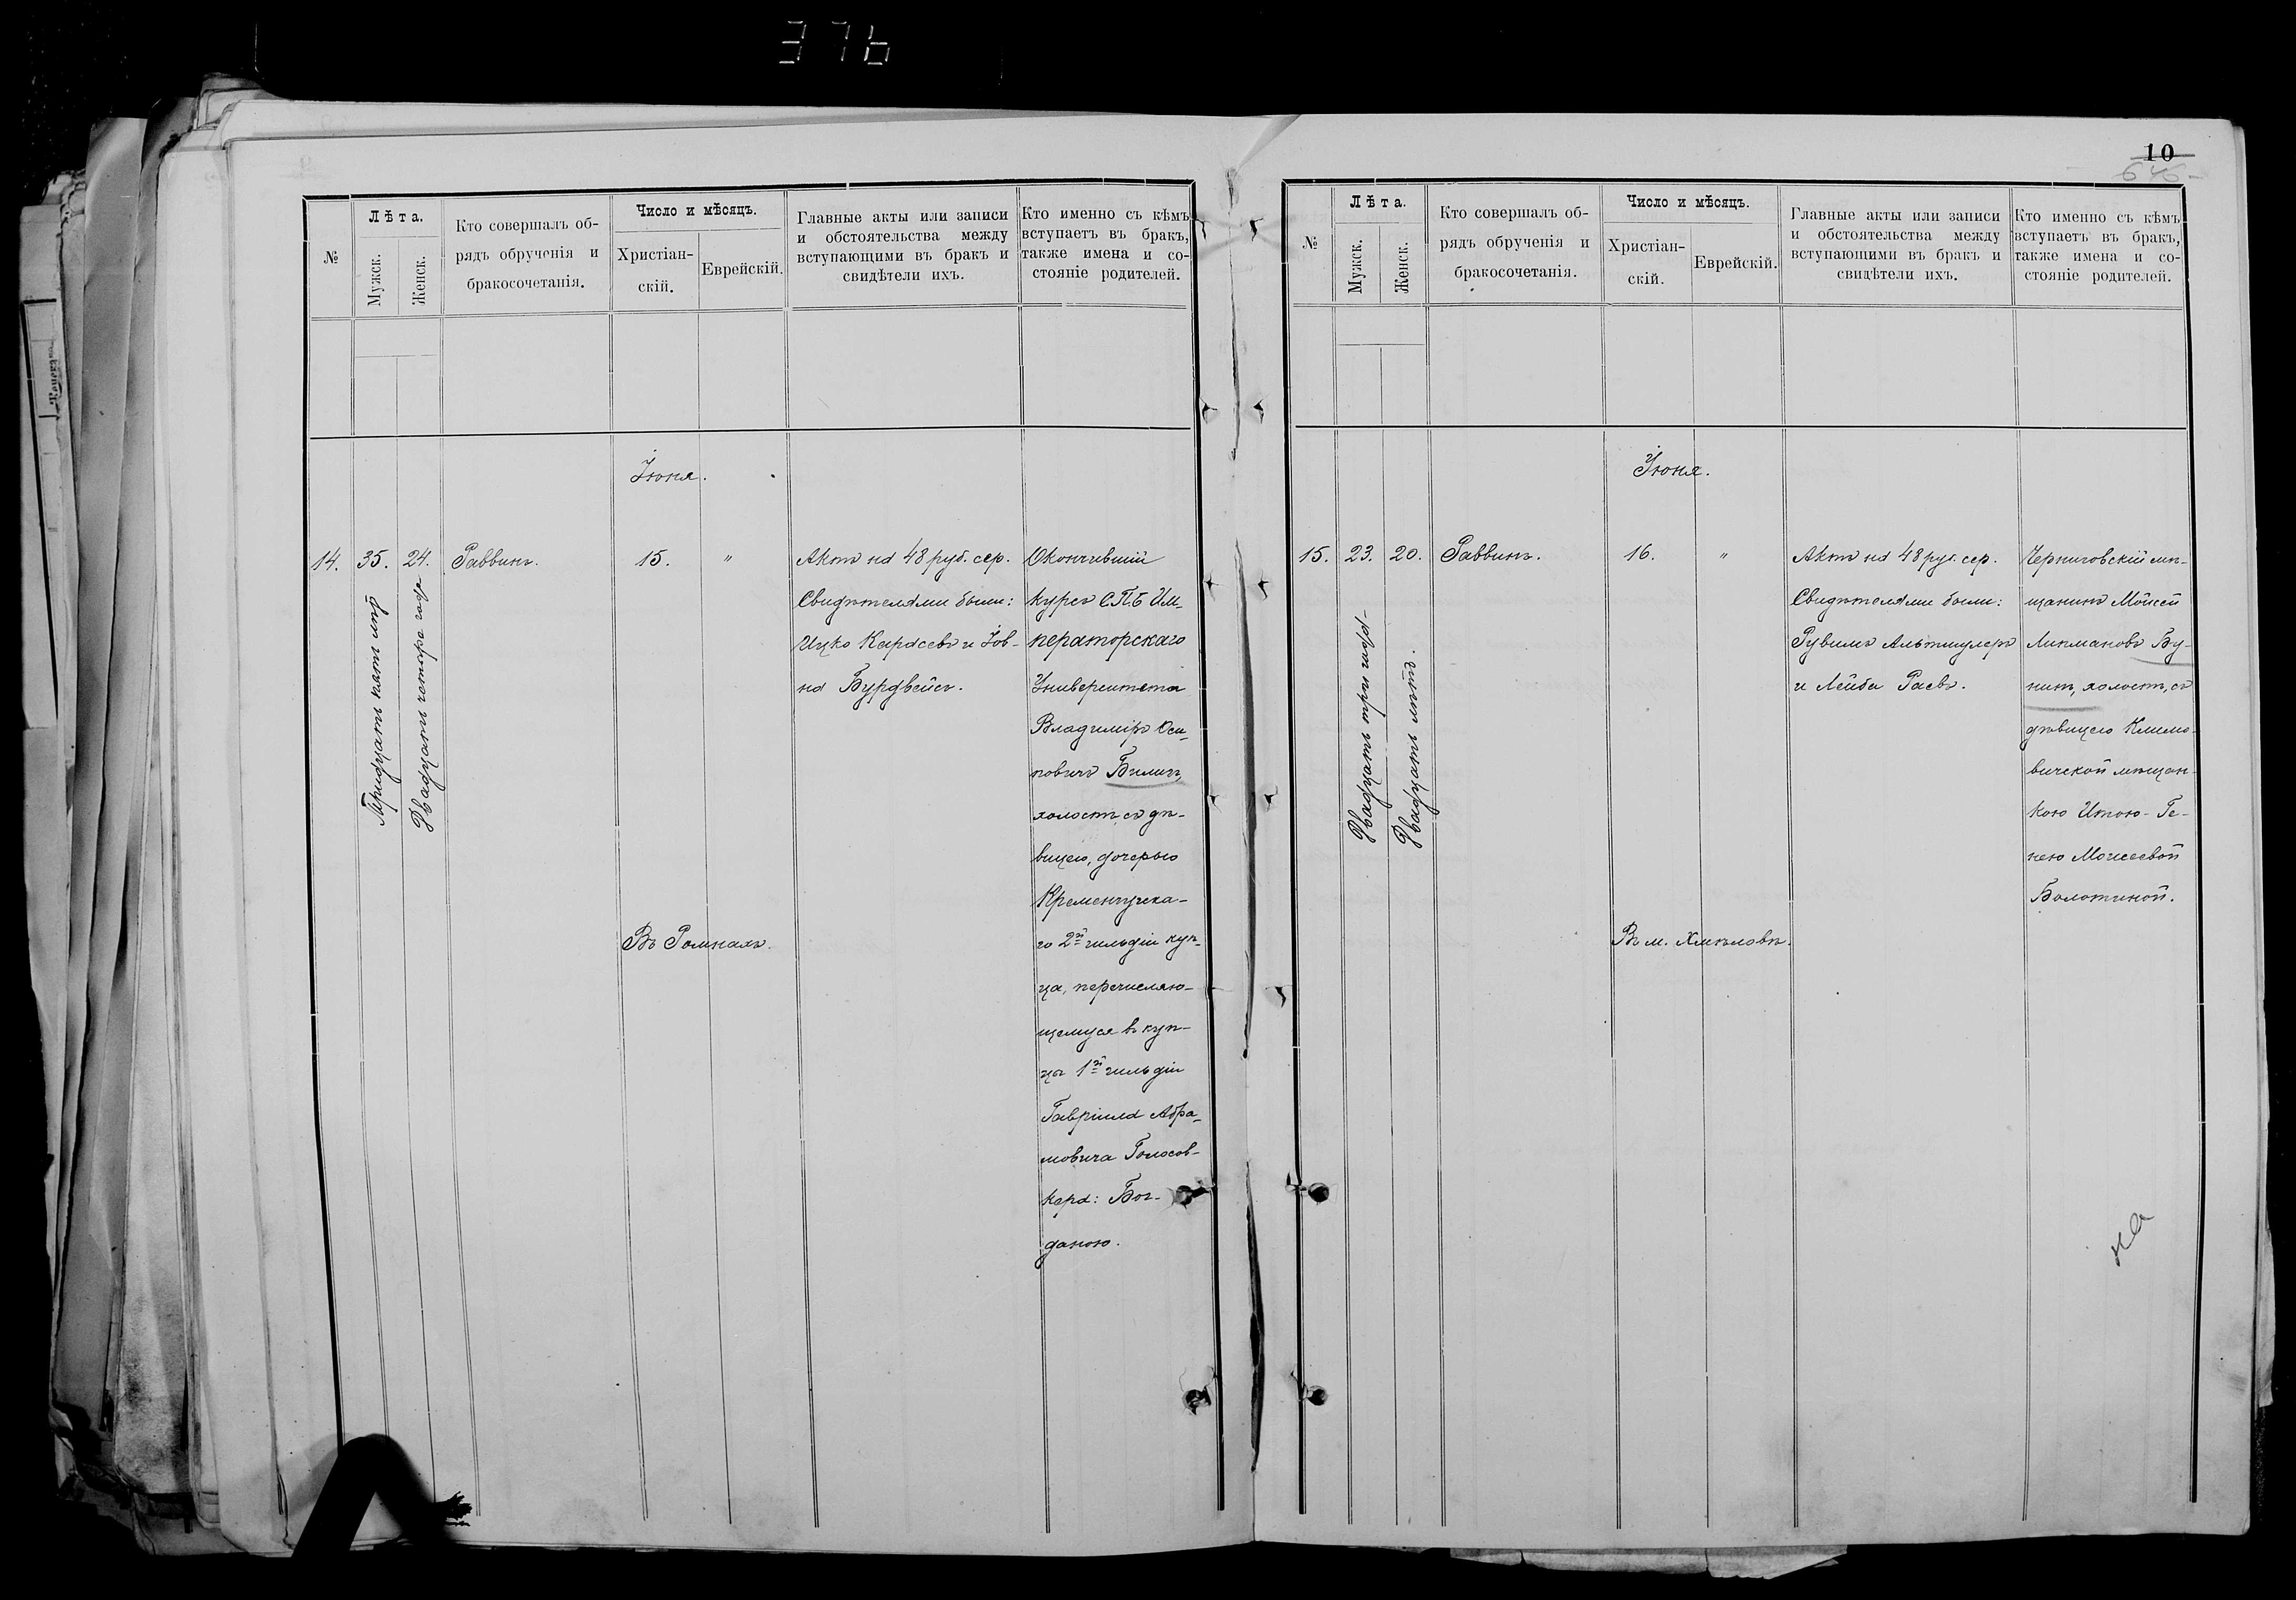 376
№
Лѣта.
Мужск.
Женск.
Кто совершалъ об-
рядъ обрученія и
бракосочетанія.
Число и мѣсяцъ.
Христіан-
скій.
Еврейскій.
Главные акты или записи
и обстоятельства между
вступающими въ бракъ и
свидѣтели ихъ.
Кто именно съ кѣмъ
вступаетъ въ бракъ,
также имена и со-
стояніе родителей.
Іюня.
14.
35.
Тридцать пять лѣтъ
24.
Двадцать четыре года
Раввинъ.
15.
"
Въ Ромнахъ.
Актъ на 48 руб. сер.
Свидѣтелями были:
Ицко Карасевъ и Іов-
на
Окончившій
курсъ С.П.Б. Им-
ператорскаго
Университета
Владиміръ Оси-
повичъ Билигъ,
холостъ, съ дѣ-
вицею, дочерью
Кременчугска-
го 2й гильдіи куп-
ца, перечисляю-
щемуся въ куп-
цы 1й гильдіи
Гавріила Абра-
мовича Голосов-
кера: Бог-
даною.
10
646
№
Лѣта.
Мужск.
Женск.
Кто совершалъ об-
рядъ обрученія и
бракосочетанія.
Число и мѣсяцъ.
Христіан-
скій.
Еврейскій.
Главные акты или записи
и обстоятельства между
вступающими въ бракъ и
свидѣтели ихъ.
Кто именно съ кѣмъ
вступаетъ въ бракъ,
также имена и со-
стояніе родителей.
Іюня.
15.
23.
Двадцать три года
20.
Двадцать лѣтъ.
Раввинъ.
16.
"
Въ м. Хмѣловѣ.
Актъ на 48 руб. сер.
Свидѣтелями были:
Рувимъ Альтшулеръ
и Лейба Раевъ.
Черниговскій мѣ-
щанинъ Мойсей
Липмановъ Бу-
нинъ, холостъ, съ
дѣвицею Климо-
вичской мѣщан-
кою Итою-Ге-
нею Моисеевой
Болотиной.
на